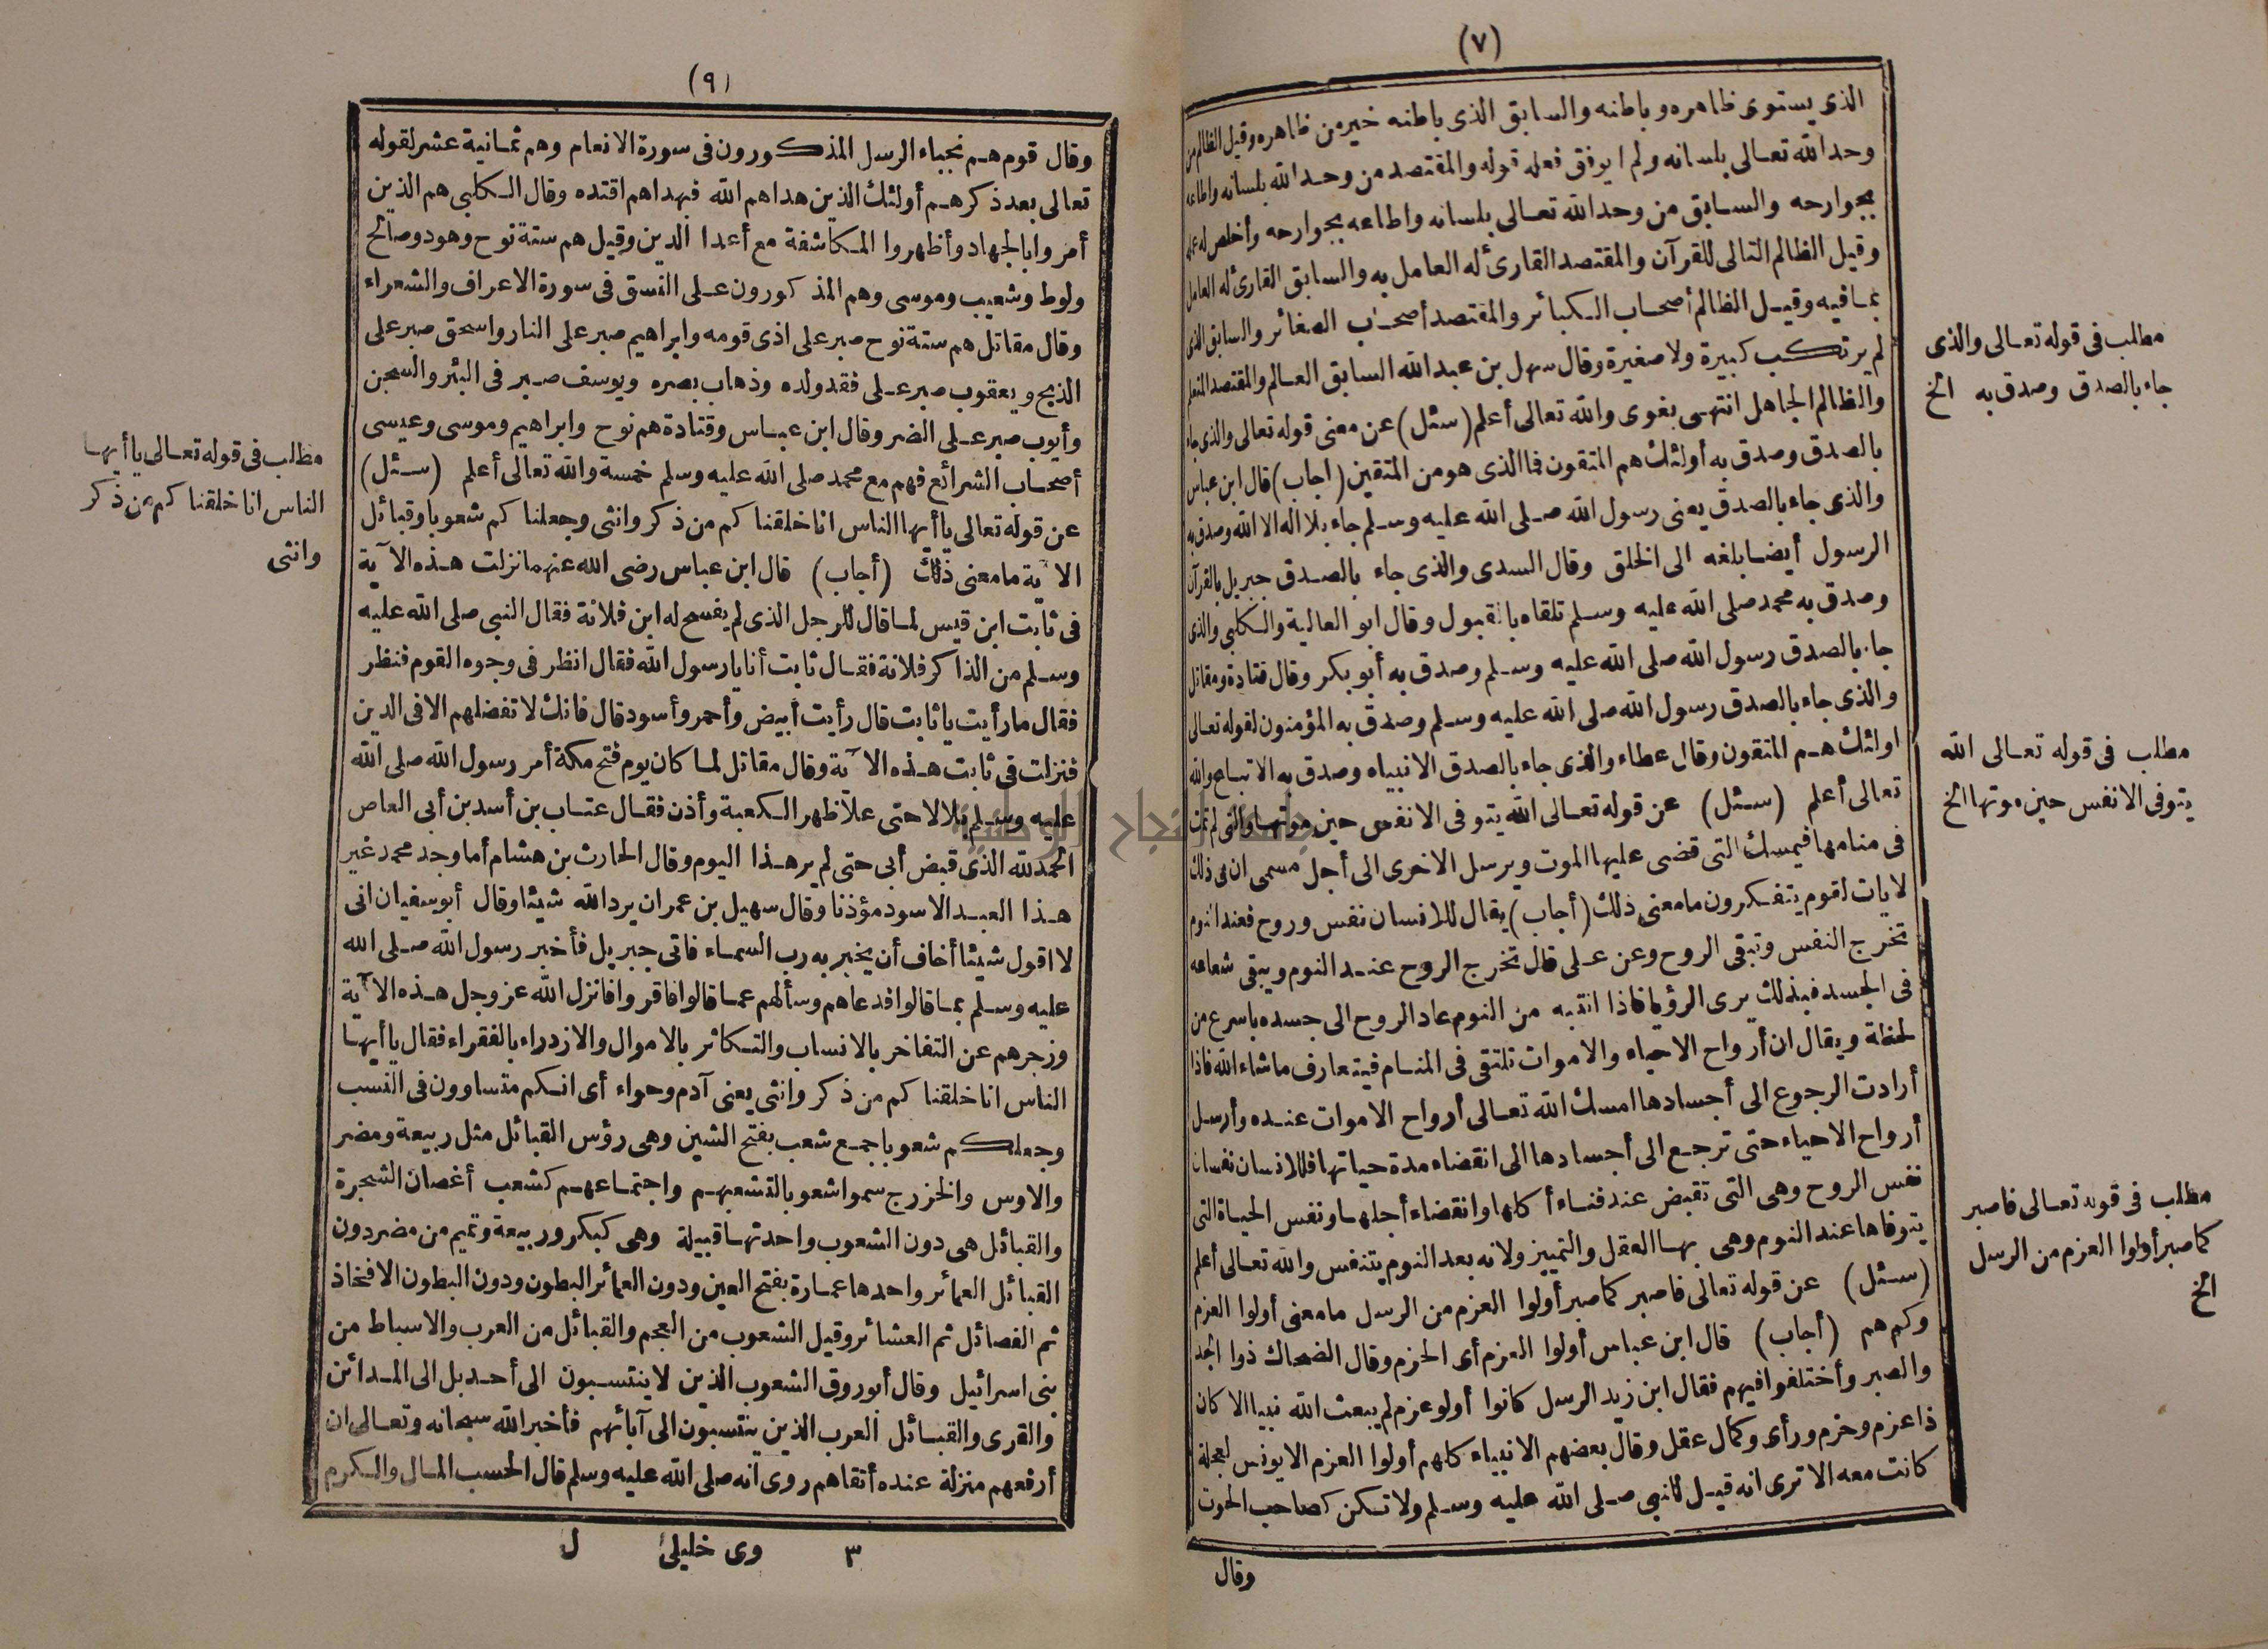 (٧)
الذى يستوى ظاهره وباطنه والسابق الذى باطنه خير من ظاهره وقيل الظالم من
وحد الله تعالى بلسانه ولم ايوفق فعله قوله والمقتصد من وحد الله بلسانه واطاعه
بجوارحه والسابق من وحد الله تعالى بلسانه واطاعه بجوارحه وأخلص له عمله
وقيل الظالم التالى للقرآن والمقتصد القارئ له العامل به والسابق القارئ له العامل
بما فيه وقيل الظالم أصحاب الكبائر والمقتصد أصحاب الصغائر والسابق الذى
لم يرتكب كبيرة ولا صغيرة وقال سهل بن عبد الله السابق العالم والمقتصد المتعلم
والظالم الجاهل انتهى بغوى والله تعالى أعلم (سئل) عن معنى قوله تعالى والذى جاء
بالصدق وصدق به أولئك هم المتقون فما الذى هو من المتقين (أجاب) قال ابن عباس
والذى جاء بالصدق يعنى رسول الله صلى الله عليه وسلم جاء بلا اله الا الله وصدق به
الرسول أيضا بلغه الى الخلق وقال السدى والذى جاء بالصدق جبريل بالقرآن
وصدق به محمد صلى الله عليه وسلم تلقاه بالقبول وقال ابو العالية والكلبى والذى
جاء بالصدق رسول الله صلى الله عليه وسلم وصدق به أبو بكر وقال قتادة ومقاتل
والذى جاء بالصدق رسول الله صلى الله عليه وسلم وصدق به المؤمنون لقوله تعالى
اولئك هم المتقون وقال عطاء والذى جاء بالصدق الانبياء وصدق به الاتباع والله
تعالى أعلم (سئل) عن قوله تعالى الله يتوفى الانفس حين موتها والتى لم تمت
فى منامها فيمسك التى قضى عليها الموت ويرسل الاخرى الى أجل مسمى ان فى ذلك
لايات لقوم يتفكرون ما معنى ذلك (أجاب) يقال للانسان نفس وروح فعند النوم
تخرج النفس وتبقى الروح وعن على قال تخرج الروح عند النوم ويبقى شعاعه
فى الجسد فبذلك يرى الرؤيا فاذا انتبه من النوم عاد الروح الى جسده باسرع من
لحظة ويقال ان أرواح الاحياء والاموات تلتقى فى المنام فيتعارف ما شاء الله فاذا
أرادت الرجوع الى أجسادها امسك الله تعالى أرواح الاموات عنده وأرسل
أرواح الاحياء حتى ترجع الى أجسادها الى انقضاء مدة حياتها فللانسان نفسان
نفس الروح وهى التى تقبض عند فناء أكلها وانقضاء أجلها ونفس الحياة التى
يتوفاها عند النوم وهى بها العقل والتمييز ولانه بعد النوم يتنفس والله تعالى أعلم
(سئل) عن قوله تعالى فاصبر كما صبر أولوا العزم من الرسل ما معنى أولوا العزم
وكم هم (أجاب) قال ابن عباس أولوا العزم أى الحزم وقال الضحاك ذوا الجد
والصبر وأختلفوا فيهم فقال ابن زيد الرسل كانوا أولو عزم لم يبعث الله نبيا الا كان
ذا عزم وحزم ورأى وكمال عقل وقال بعضهم الانبياء كلهم أولوا العزم الا يونس لعجلة
كانت معه الا ترى انه قيل للنبى صلى الله عليه وسلم ولا تكن كصاحب الحوت
وقال
مطلب فى قوله تعالى والذى
جاء بالصدق وصدق به الخ
مطلب فى قوله تعالى الله
يتوفى الانفس حين موتها الخ
مطلب فى قوله تعالى فاصبر
كما صبر أولوا العزم من الرسل
الخ
(٩)
وقال قوم هم نجباء الرسل المذكورون فى سورة الانعام وهم ثمانية عشر لقوله
تعالى بعد ذكرهم أولئك الذين هداهم الله فبهداهم اقتده وقال الكلبى هم الذين
أمروا بالجهاد وأظهروا المكاشفة مع أعدا الدين وقيل هم ستة نوح وهود وصالح
ولوط وشعيب وموسى وهم المذكورون على النسق فى سورة الاعراف والشعراء
وقال مقاتل هم ستة نوح صبر على اذى قومه وابراهيم صبر على النار واسحق صبر على
الذبح ويعقوب صبر على فقد ولده وذهاب بصره ويوسف صبر فى البئر والسجن
وأيوب صبر على الضر وقال ابن عباس وقتادة هم نوح وابراهيم وموسى وعيسى
أصحاب الشرائع فهم مع محمد صلى الله عليه وسلم خمسة والله تعالى أعلم (سئل)
عن قوله تعالى يا أيها الناس انا خلقناكم من ذكر وانثى وجعلناكم شعوبا وقبائل
الآية ما معنى ذلك (أجاب) قال ابن عباس رضى الله عنهما نزلت هذه الآية
فى ثابت ابن قيس لما قال للرجل الذى لم يفسح له ابن فلانة فقال النبى صلى الله عليه
وسلم من الذاكر فلانة فقال ثابت أنا يا رسول الله فقال انظر فى وجوه القوم فنظر
فقال ما رأيت يا ثابت قال رأيت أبيض وأحمر وأسود قال فانك لا تفضلهم الا فى الدين
فنزلت فى ثابت هذه الآية وقال مقاتل لما كان يوم فتح مكة أمر رسول الله صلى الله
عليه وسلم بلالا حتى علا ظهر الكعبة وأذن فقال عتاب بن أسد بن أبى العاص
الحمد لله الذى قبض أبى حتى لم ير هذا اليوم وقال الحارث بن هشام أما وجد محمد غير
هذا العبد الاسود مؤذنا وقال سهيل بن عمر ان يرد الله شيئا وقال أبو سفيان انى
لا اقول شيئا أخاف أن يخبر به رب السماء فاتى جبريل فأخبر رسول الله صلى الله
عليه وسلم بما قالوا فدعاهم وسألهم عما قالوا فاقروا فانزل الله عز وجل هذه الآية
وزجرهم عن التفاخر بالانساب والتكاثر بالاموال والازدراء بالفقراء فقال يا أيها
الناس انا خلقناكم من ذكر وانثى يعنى آدم وحواء أى انكم متساوون فى النسب
وجعلكم شعوبا جمع شعب بفتح الشين وهى رؤس القبائل مثل ربيعة ومضر
والاوس والخزرج سموا شعوبا لتشعبهم واجتماعهم كشعب أغصان الشجرة
والقبائل هى دون الشعوب واحدتها قبيلة وهى كبكر وربيعة وتميم من مضر دون
القبائل العمائر واحدها عمارة بفتح العين ودون العمائر البطون ودون البطون الافخاذ
ثم الفصائل ثم العشائر وقيل الشعوب من العجم والقبائل من العرب والاسباط من
بنى اسرائيل وقال أبو روق الشعوب الذين لا ينتسبون الى أحد بل الى المدائن
والقرى والقبائل العرب الذين ينتسبون الى آبائهم فأخبر الله سبحانه وتعالى ان
أرفعهم منزلة عنده أتقاهم روى انه صلى الله عليه وسلم قال الحسب المال والكرم
٣ وى خليلى ل
مطلب فى قوله تعالى يا أيها
الناس انا خلقناكم من ذكر
وانثى
جامعة النجاح الوطنية